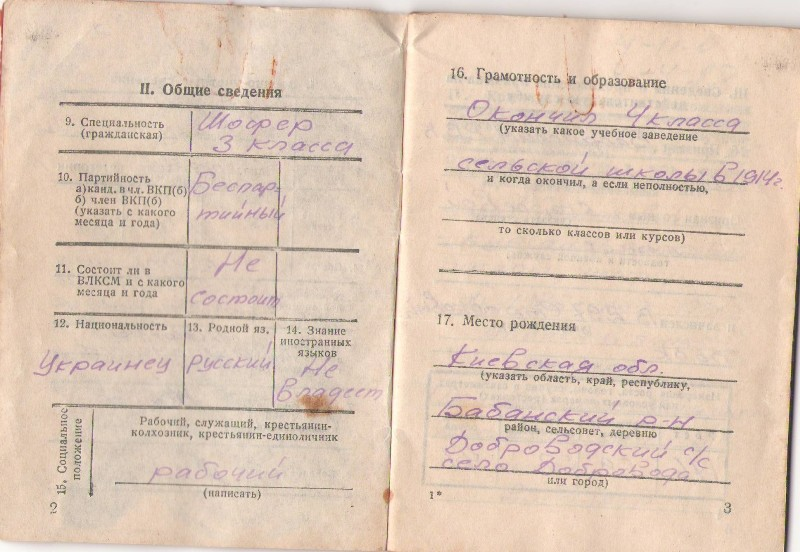 II. Общие сведения
9. Специальность
(гражданская)
Шофер
3 класса
10. Партийность
а) канд. в чл. ВКП(б)
б) член ВКП(б)
(указать с какого
месяца и года)
Беспар-
тийный
11. Состоит ли в
ВЛКСМ и с какого
месяца и года
Не
состоит
12. Национальность
Украинец
13. Родной яз.
Русский
14. Знание
иностранных
языков
Не
Владеет
15. Социальное
положение
Рабочий, служащий, крестьянин-
колхозник, крестьянин-единоличник
рабочий
(написать)
2
16. Грамотность и образование
Окончил 4 класса
(указать какое учебное заведение
сельской школы в 1914 г.
и когда окончил, а если неполностью,
то сколько классов или курсов)
17. Место рождения
Киевская обл.
(указать область, край, республику,
Бабанский р-н
район, сельсонет, деревню
Доброводский с/с
село Добровода
или город)
1*
3